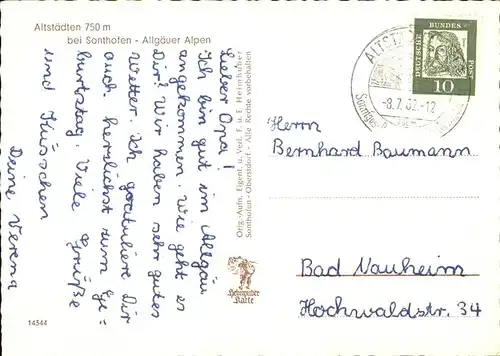 Altstädten 750 m
bei Sonthofen - Allgäuer Alpen
Lieber Opa!
Ich bin gut im Allgäu
angekommen. Wie geht es
Dir? Wir haben sehr gutes
Wetter. Ich gratuliere Dir
auch herzlichst zum Ge-
burtstag. Viele Grüße
und Küsschen
Deine Verena
Orig.-Aufn. Eigent. u. Verl. F. u. E. Heimhuber
Sonthofen - Oberstdorf - Alle Rechte vorbehalten
Heimhuber
Karte
14544
ALTST
-8.7.62.-12
DEUTSCHE
BUNDES
POST
10
Herrn
Bernhard Baumann
Bad Nauheim
Hochwaldstr. 34